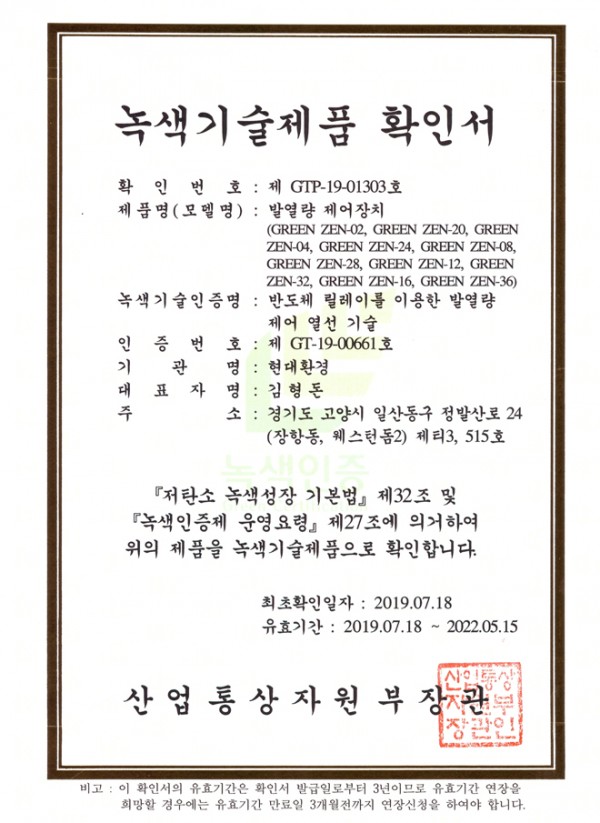 녹색기술제품 확인서
확인번호 : 제 GTP-19-01303호
제품명(모델명) : 발열량 제어장치
(GREEN ZEN-02, GREEN ZEN-20, GREEN
ZEN-04, GREEN ZEN-24, GREEN ZEN-08,
GREEN ZEN-28, GREEN ZEN-12, GREEN
ZEN-32, GREEN ZEN-16, GREEN ZEN-36)
녹색기술인증명 : 반도체 릴레이를 이용한 발열량
제어 열선 기술
인증번호 : 제 GT-19-00661호
기관명 : 현대환경
대표자명 : 김형돈
주소 : 경기도 고양시 일산동구 정발산로 24
(장항동, 웨스턴돔2) 제티3, 515호
녹색인증
『저탄소 녹색성장 기본법』 제32조 및
『녹색인증제 운영요령』 제27조에 의거하여
위의 제품을 녹색기술제품으로 확인합니다.
최초확인일자 : 2019.07.18
유효기간 : 2019.07.18 ~ 2022.05.15
산업통상자원부장관
산업통상
자원부
장관인
비고 : 이 확인서의 유효기간은 확인서 발급일로부터 3년이므로 유효기간 연장을
희망할 경우에는 유효기간 만료일 3개월전까지 연장신청을 하여야 합니다.